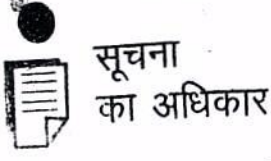 सूचना
का अधिकार